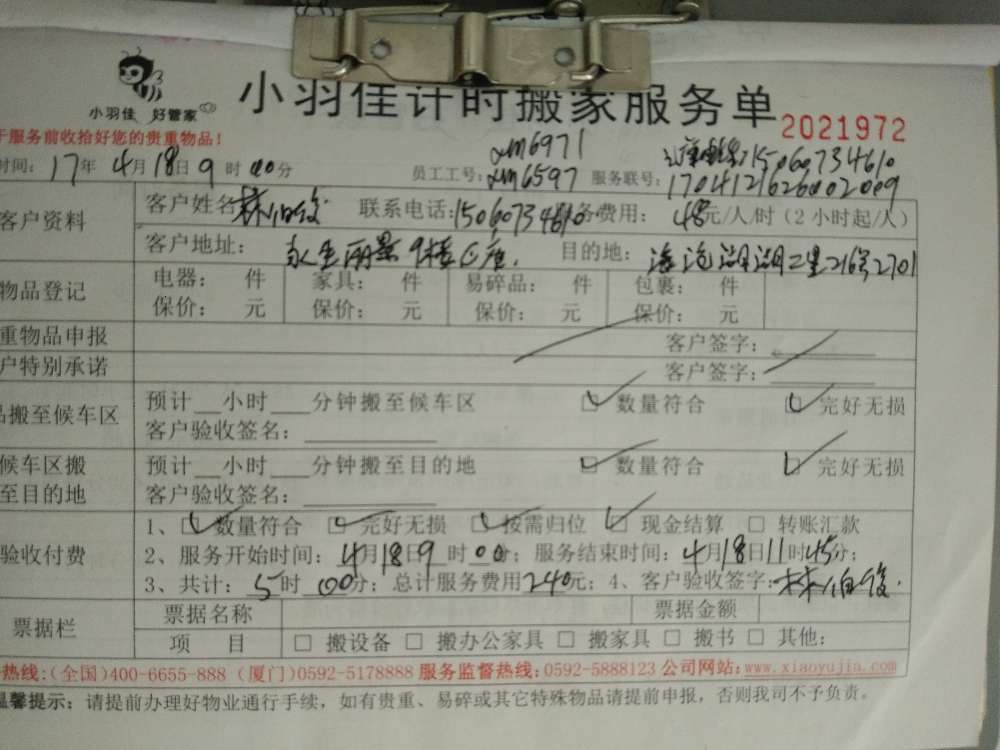 小羽佳 好管家
小羽佳计时搬家服务单
2021972
服务前收拾好您的贵重物品！
时间：17年4月18日9时00分
员工工号：xm6971
xm6597
15060734610
服务联号：1704121626002009
客户资料
客户姓名 林伯俊 联系电话：15060734610 务费用：48元/人/时（2小时起/人）
客户地址： 永呈丽景9楼 目的地： 湖二里216号2701
物品登记
电器： 件 家具： 件 易碎品： 件 包裹： 件
保价： 元 保价： 元 保价： 元 保价： 元
重物品申报 客户签字：
户特别承诺 客户签字：
品搬至候车区
预计__小时___分钟搬至候车区 □ 数量符合 □ 完好无损
客户验收签名：
候车区搬至目的地
预计__小时___分钟搬至目的地 □ 数量符合 □ 完好无损
客户验收签名：
验收付费
1、□ 数量符合 □ 完好无损 □ 按需归位 □ 现金结算 □ 转账汇款
2、服务开始时间：4月18日9时00分；服务结束时间：4月18日11时45分；
3、共计：5时00分；总计服务费用240元；4、客户验收签字：林伯俊
票据栏
票据名称 票据金额
项 目 □ 搬设备 □ 搬办公家具 □ 搬家具 □ 搬书 □ 其他：
热线：（全国）400-6655-888（厦门）0592-5178888 服务监督热线：0592-5888123 公司网站：www.xiaoyujia.com
温馨提示：请提前办理好物业通行手续，如有贵重、易碎或其它特殊物品请提前申报，否则我司不予负责。